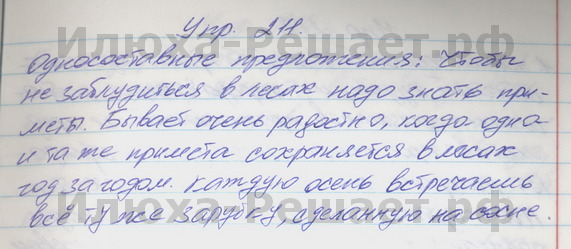 Упр. 211.
Односоставные предложения: Чтобы
не заблудиться в лесах надо знать при-
меты. Бывает очень радостно, когда одна
и та же примета сохраняется в лесах
год за годом. Каждую осень встречаешь
всё ту же зарубку, сделанную на сосне.
Илюха-Решает.рф
Илюха-Решает.рф